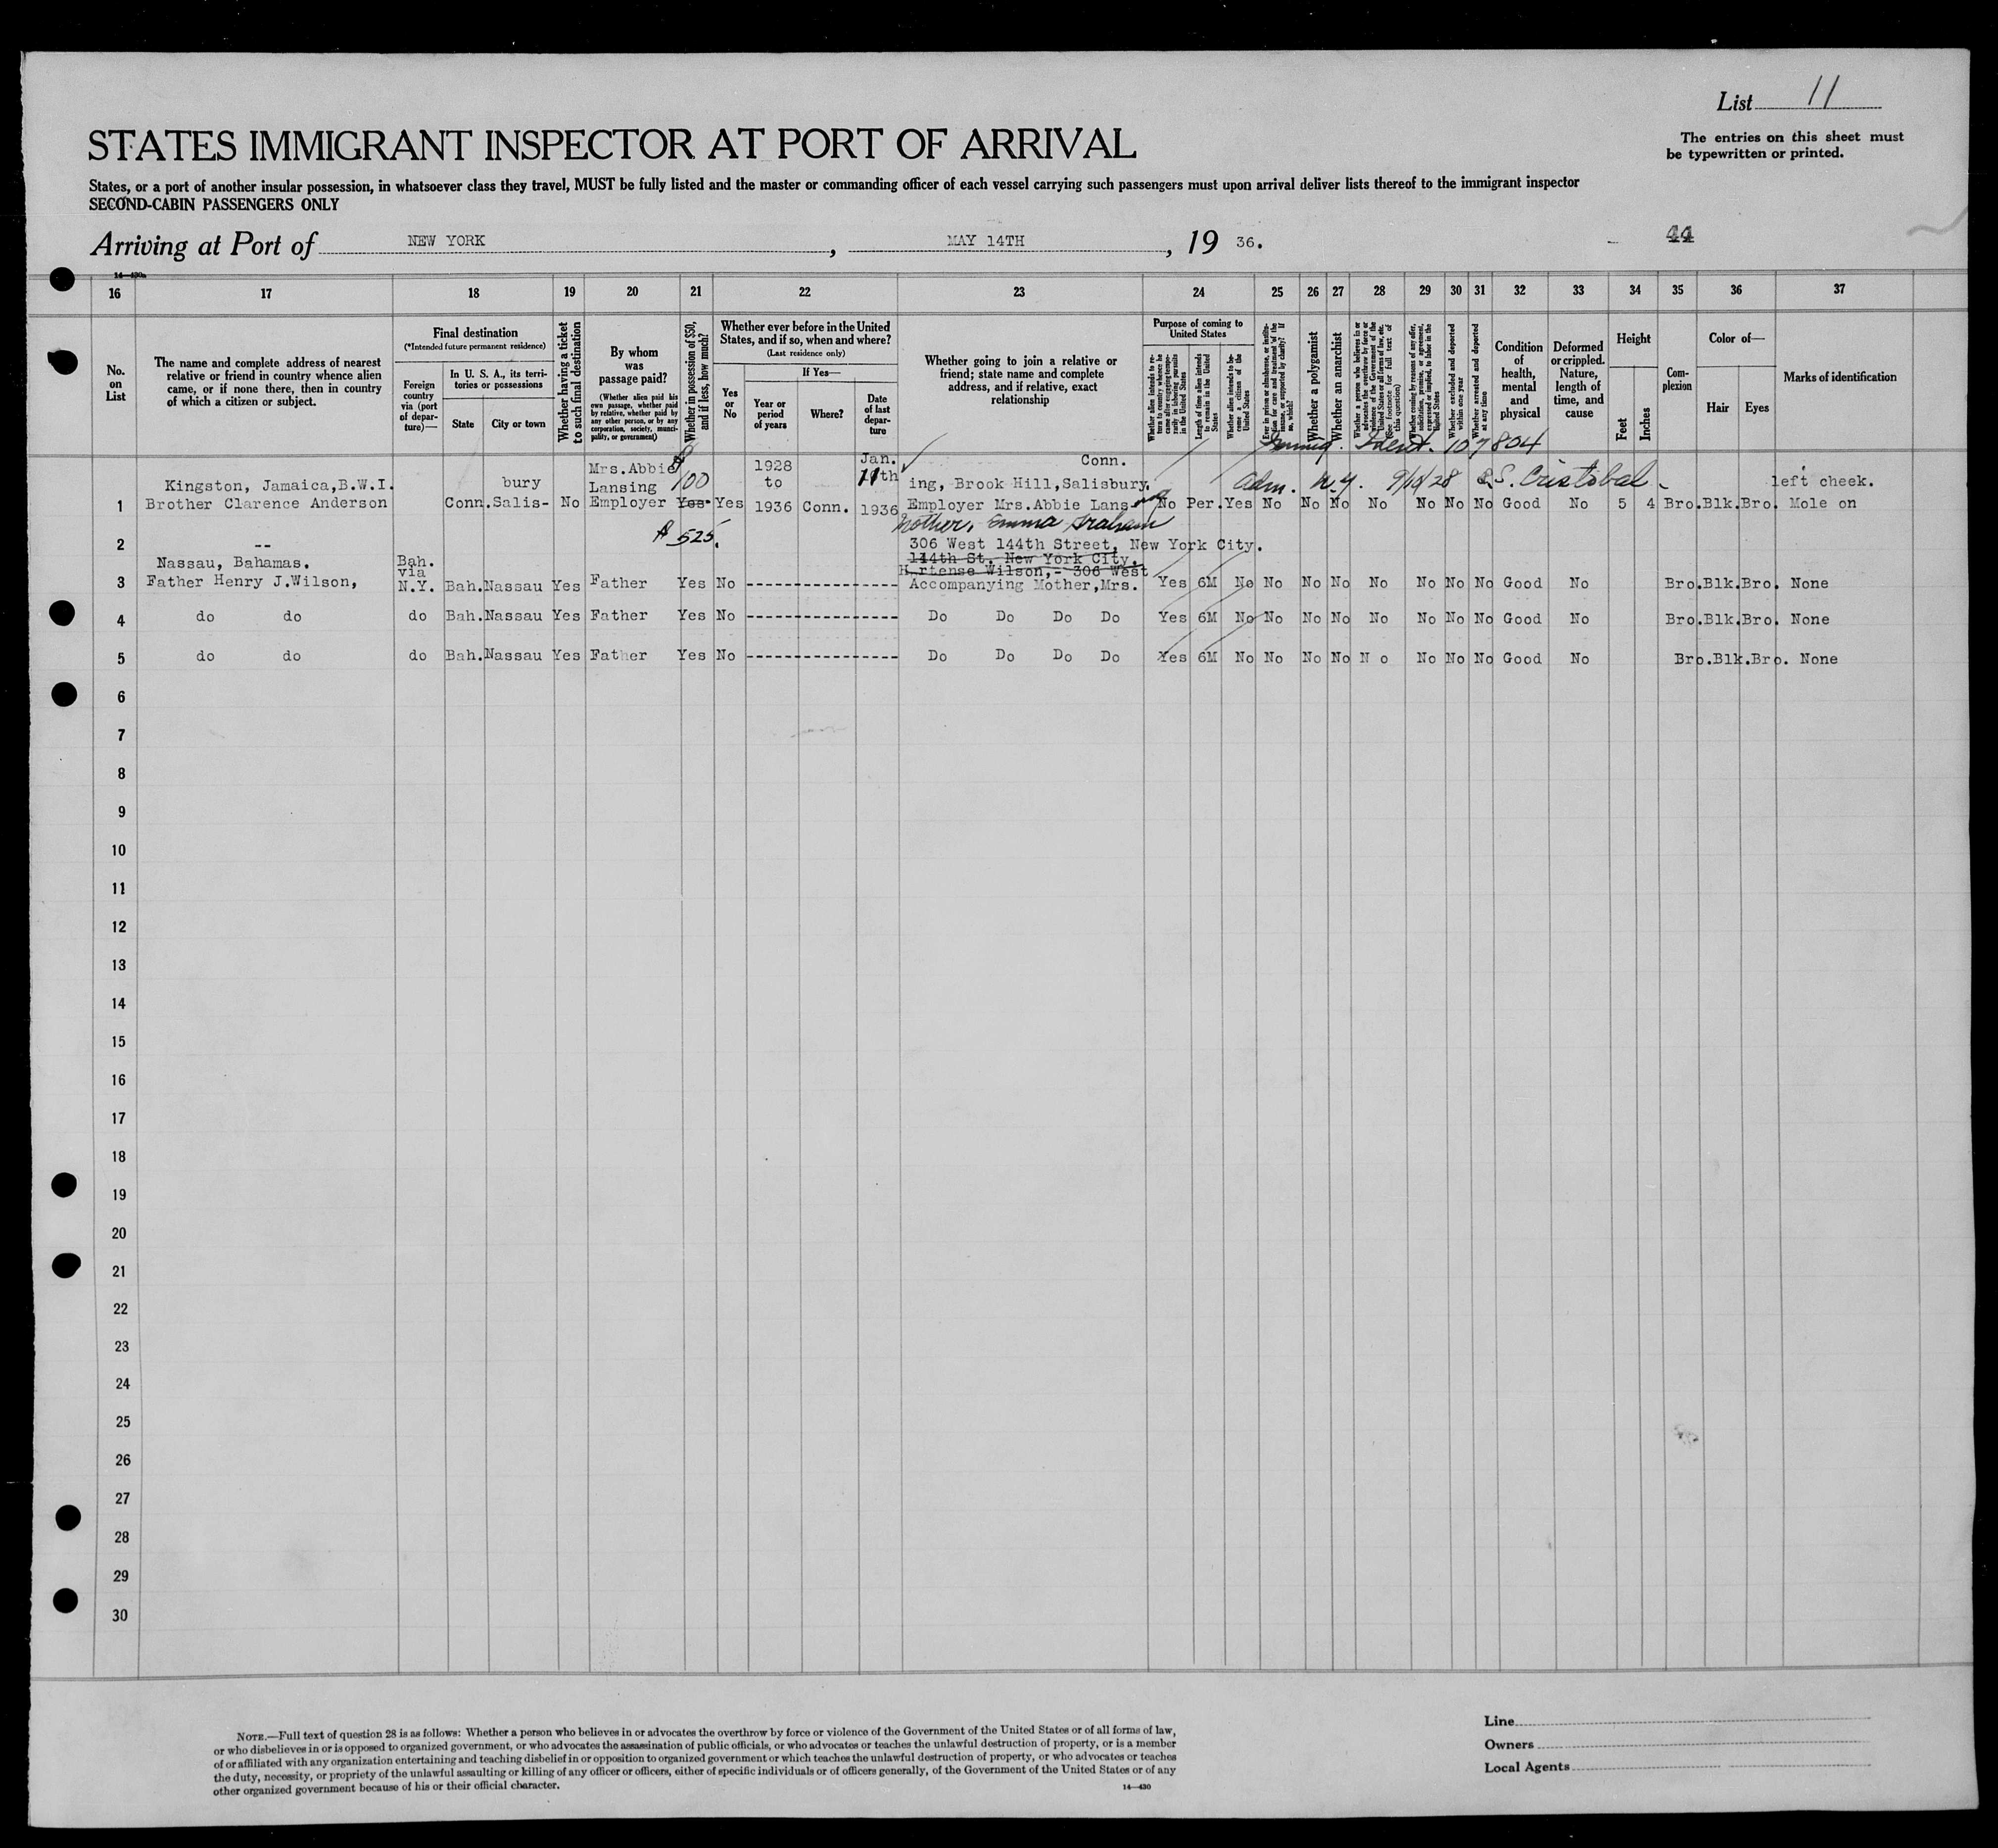 List 11
The entries on this sheet must
be typewritten or printed.
STATES IMMIGRANT INSPECTOR AT PORT OF ARRIVAL
States, or a port of another insular possession, in whatsoever class they travel, MUST be fully listed and the master or commanding officer of each vessel carrying such passengers must upon arrival deliver lists thereof to the immigrant inspector
SECOND-CABIN PASSENGERS ONLY
Arriving at Port of NEW YORK, MAY 14TH, 19 36.
44
14—430a
16 17 18 19 20 21 22 23 24 25 26 27 28 29 30 31 32 33 34 35 36 37
No. on List
The name and complete address of nearest
relative or friend in country whence alien
came, or if none there, then in country
of which a citizen or subject.
Final destination
(*Intended future permanent residence)
Foreign country via (port of departure)—
In U. S. A., its territories or possessions
State
City or town
Whether having a ticket to such final destination
By whom was passage paid?
(Whether alien paid his own passage, whether paid by relative, whether paid by any other person, or by any corporation, society, municipality, or government)
Whether in possession of $50, and if less, how much?
Whether ever before in the United States, and if so, when and where?
(Last residence only)
Yes or No
If Yes—
Year or period of years
Where?
Date of last departure
Whether going to join a relative or
friend; state name and complete
address, and if relative, exact
relationship
Purpose of coming to United States
Whether alien intends to return to country whence he came after engaging temporarily in laboring pursuits in the United States
Length of time alien intends to remain in the United States
Whether alien intends to become a citizen of the United States
Ever in prison or almshouse, or institution for care and treatment of the insane, or supported by charity? If so, which?
Whether a polygamist
Whether an anarchist
Whether a person who believes in or advocates the overthrow by force or violence of the Government of the United States or all forms of law, etc. (See footnote for full text of this question)
Whether coming by reasons of any offer, solicitation, promise, or agreement, expressed or implied, to labor in the United States
Whether excluded and deported within one year
Whether arrested and deported at any time
Condition of health, mental and physical
Deformed or crippled. Nature, length of time, and cause
Height
Feet
Inches
Complexion
Color of—
Hair
Eyes
Marks of identification
Immig. Ident. 107804
Adm. N.Y. 9/18/28 S.S. Cristobal
Mrs.Abbie $100 1928 Jan. Conn.
Kingston, Jamaica,B.W.I. bury Lansing to 11th ing, Brook Hill,Salisbury, left cheek.
1 Brother Clarence Anderson Conn.Salis- No Employer Yes Yes 1936 Conn. 1936 Employer Mrs.Abbie Lans- No Per. Yes No No No No No No No Good No 5 4 Bro.Blk.Bro. Mole on
Mother, Emma Graham
$525.
2 -- 306 West 144th Street, New York City.
144th St. New York City.
Nassau, Bahamas. Bah. via Hortense Wilson,- 306 West
3 Father Henry J.Wilson, N.Y. Bah.Nassau Yes Father Yes No ------------------ Accompanying Mother,Mrs. Yes 6M No No No No No No No No Good No Bro.Blk.Bro. None
4 do do do Bah.Nassau Yes Father Yes No ------------------ Do Do Do Do Yes 6M No No No No No No No No Good No Bro.Blk.Bro. None
5 do do do Bah.Nassau Yes Father Yes No ------------------ Do Do Do Do Yes 6M No No No No N o No No No Good No Bro.Blk.Bro. None
6
7
8
9
10
11
12
13
14
15
16
17
18
19
20
21
22
23
24
25
26
27
28
29
30
NOTE.—Full text of question 28 is as follows: Whether a person who believes in or advocates the overthrow by force or violence of the Government of the United States or of all forms of law,
or who disbelieves in or is opposed to organized government, or who advocates the assassination of public officials, or who advocates or teaches the unlawful destruction of property, or is a member
of or affiliated with any organization entertaining and teaching disbelief in or opposition to organized government or which teaches the unlawful destruction of property, or who advocates or teaches
the duty, necessity, or propriety of the unlawful assaulting or killing of any officer or officers, either of specific individuals or of officers generally, of the Government of the United States or of any
other organized government because of his or their official character.
14—430
Line
Owners
Local Agents